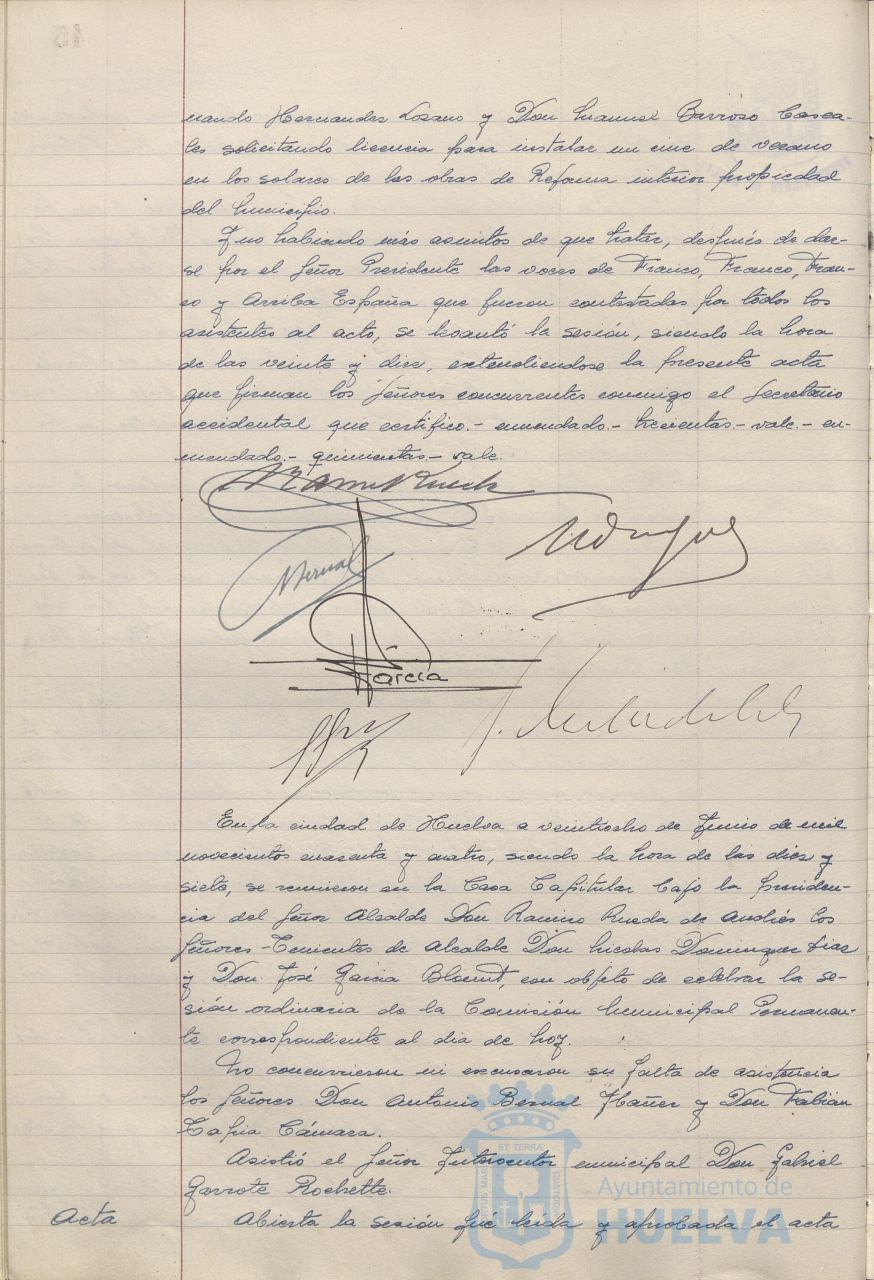 nando Hernandez Lozano y Don Manuel Barroso Casca-
les solicitando licencia para instalar un cine de verano
en los solares de las obras de Reforma interior propiedad
del Municipio.
Y no habiendo más asuntos de que tratar, después de dar-
se por el Señor Presidente las voces de Franco, Franco, Fran-
co y Arriba España que fueron contestadas por todos los
asistentes al acto, se levantó la sesión, siendo la hora
de las veinte y diez, extendiendose la presente acta
que firman los Señores concurrentes conmigo el Secretario
accidental que certifico.- enmendado.- trecientas.- vale.- en-
mendado.- quinientas.- vale.
Bernal
García
En la ciudad de Huelva a veintiocho de Junio de mil
novecientos cuarenta y cuatro, siendo la hora de las diez y
siete, se reunieron en la Casa Capitular bajo la presiden-
cia del Señor Alcalde Don Ramiro Rueda de Andrés los
Señores Tenientes de Alcalde Don Nicolas Dominguez Diaz
y Don José García Blocmt, con objeto de celebrar la se-
sión ordinaria de la Comisión Municipal Permanen-
te correspondiente al dia de hoy.
No concurrieron ni excusaron su falta de asistencia
los Señores Don Antonio Bernal Ybañez y Don Fabián
Tapia Cámara.
Asistió el Señor Interventor municipal Don Gabriel
Garrote Rochette.
Acta Abierta la sesión fué leída y aprobada el acta
Ayuntamiento de
HUELVA